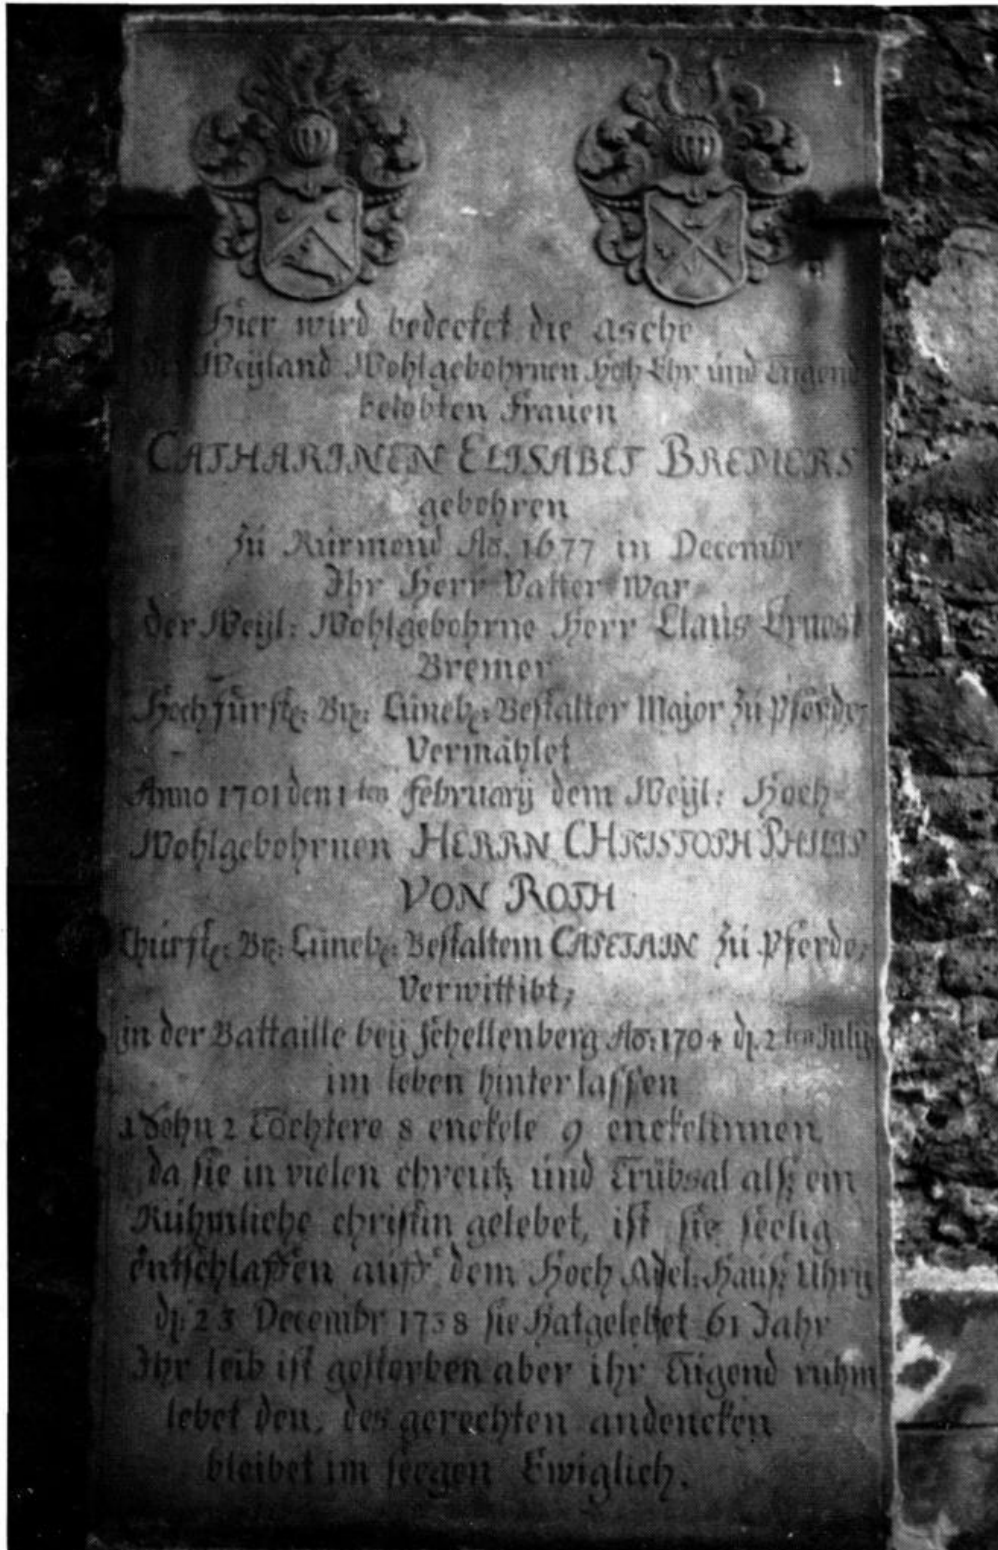 Hier wird bedecket die asche
der Weyland Wohlgebohrnen Hoh Ehr und Tugend
belobten Frauen
CATHARINEN ELISABET BREMERS
gebohren
zu Rurmond Ao. 1677 in Decembr
Ihr Herr Vatter War
der Weyl: Wohlgebohrne Herr Claus Ernest
Bremer
Hochfürstl: Br: Lüneb: Bestalter Major zu Pferde,
Vermählet
Anno 1701 den 1ten februarij dem Weyl: Hoch-
Wohlgebohrnen HERRN CHRISTOPH PHILIP
VON ROTH
Churfl: Br: Lüneb: Bestaltem CAPETAIN zu Pferde,
Verwittibt,
in der Battaille bey schellenberg Ao: 1704 d. 2ten July
im leben hinterlassen
1 Sohn 2 Töchtere 8 enckele 9 enckelinnen
da sie in vielen chreutz und Trübsal alß ein
Rühmliche christin gelebet, ist sie seelig
entschlaffen auff dem Hoch Adel: Hauß Uhry
d: 23 Decembr 1738 sie Hat gelebet 61 Jahr
Ihr leib ist gestorben aber ihr Tugend ruhm
lebet den, des gerechten andencken
bleibet im seegen Ewiglich.